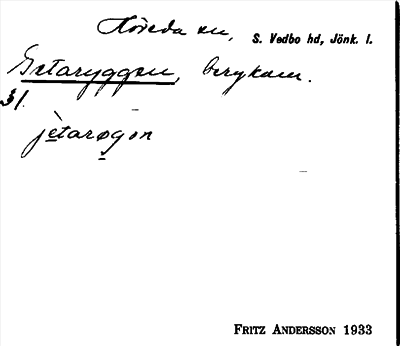 Höreda sn, S. Vedbo hd, Jönk. l.
Getaryggen, bergkam.
§1.
jètarøgən
FRITZ ANDERSSON 1933